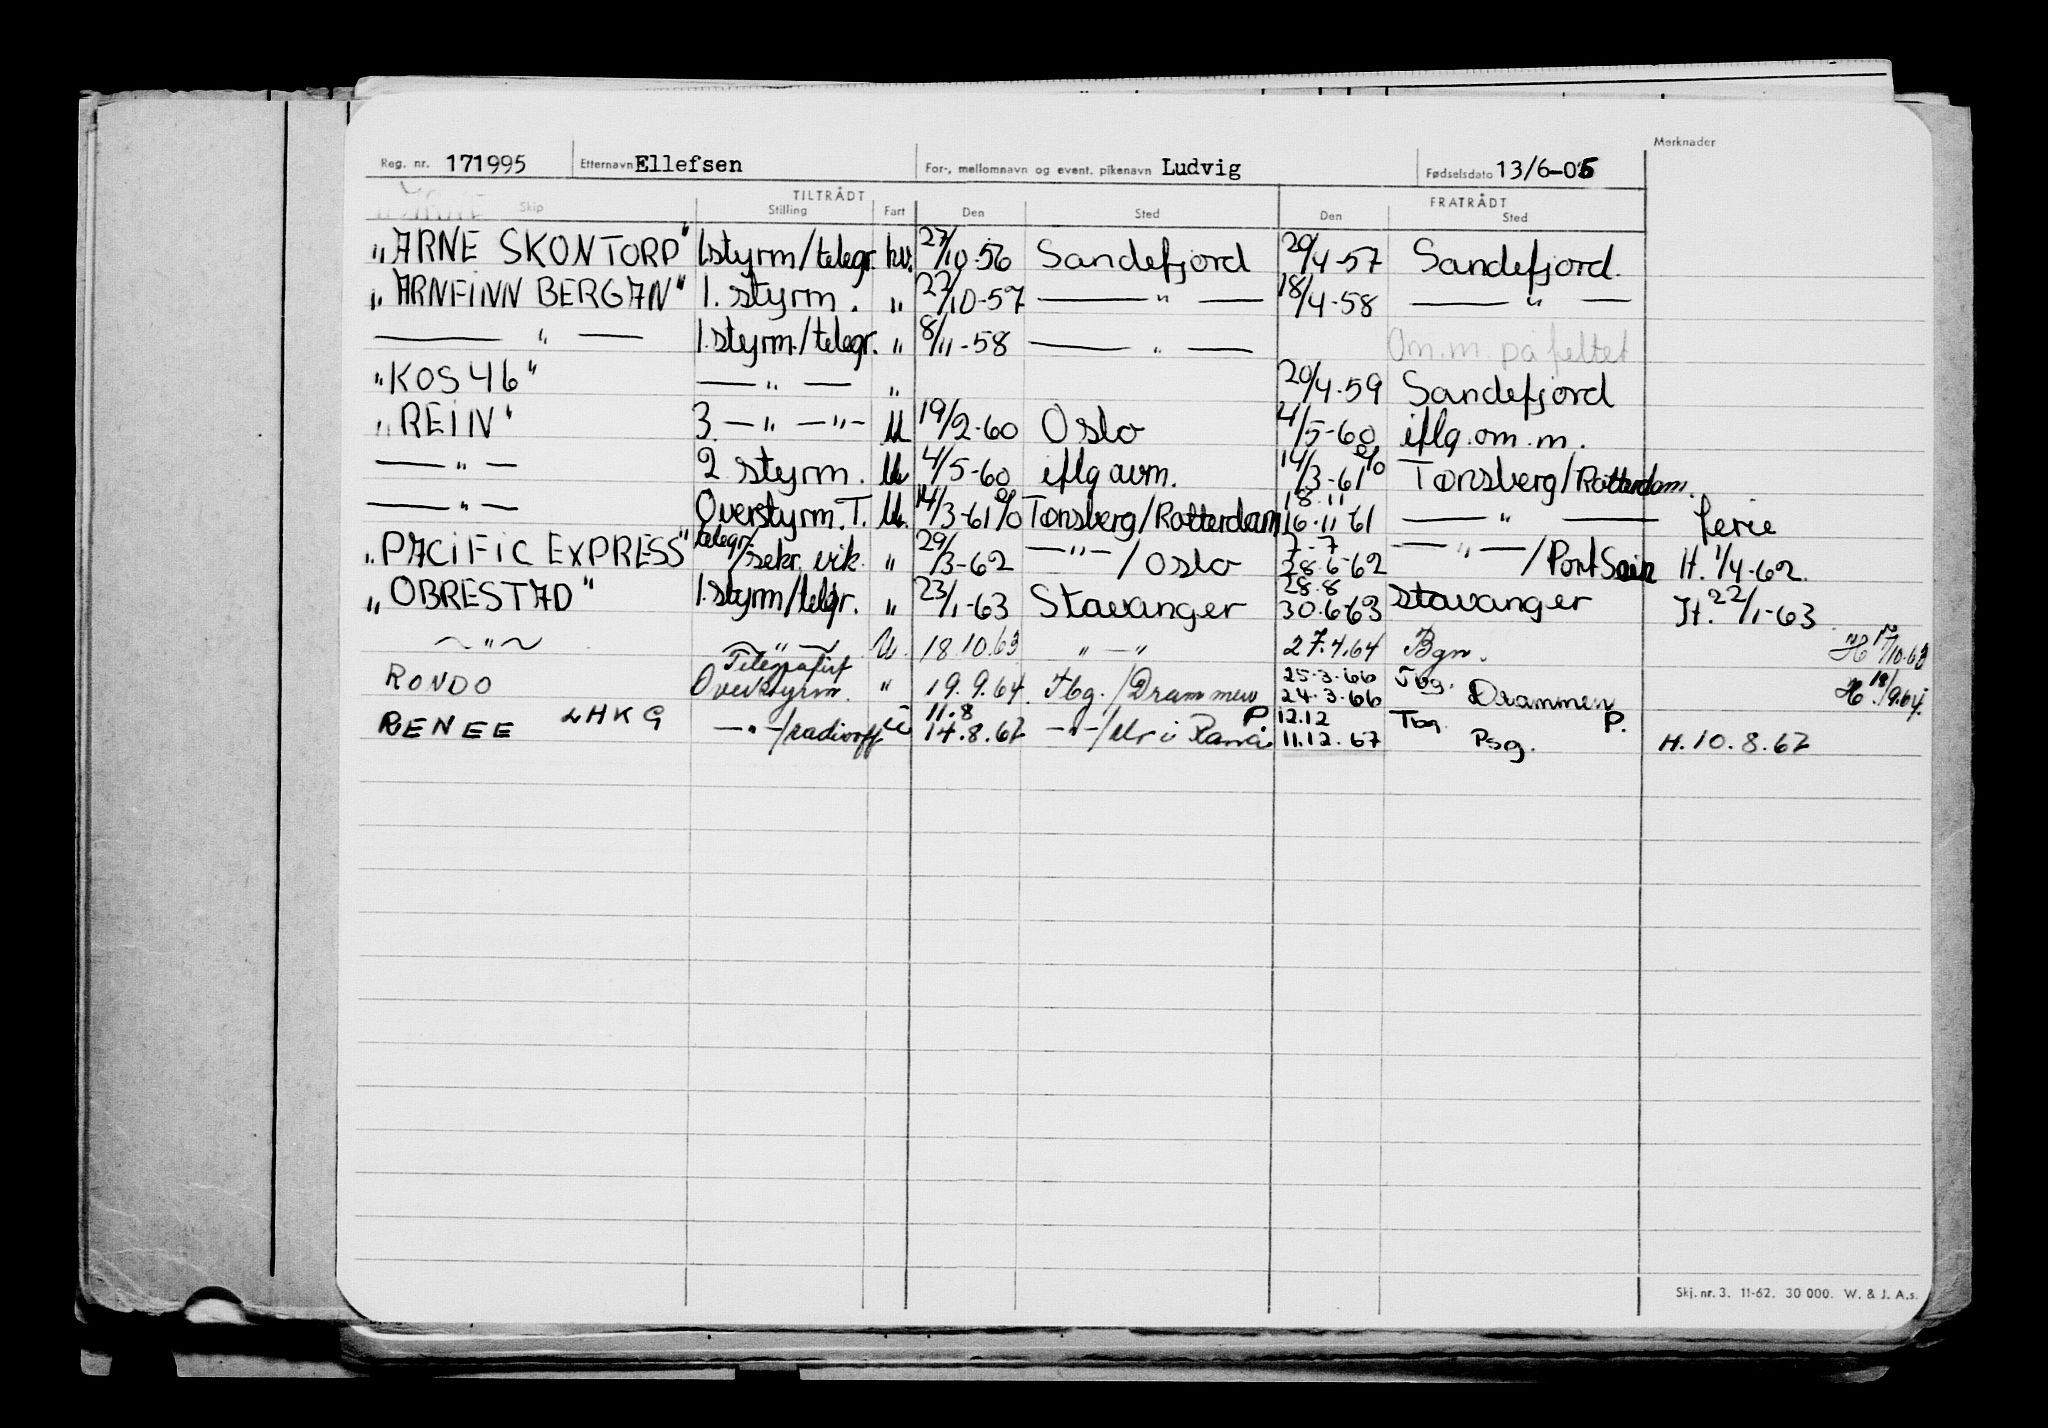 Merknader
Reg. nr. 171995 Etternavn Ellefsen For-, mellomnavn og event. pikenavn Ludvig Fødselsdato 13/6-05
TILTRÅDT FRATRÅDT
Skip Stilling Fart Den Sted Den Sted
"ARNE SKONTORP" 1.styrm/telegr. hv. 27/10-56 Sandefjord 20/4-57 Sandefjord.
"ARNFINN BERGAN" 1. styrm. " 22/10-57 — " — 18/4-58 — " —
— " — 1.styrm./telegr. " 8/11-58 — " — Om.m. på feltet
"KOS 46" — " — " 20/4-59 Sandefjord
"REIN" 3. — " — " — U 19/2-60 Oslo 4/5-60 iflg. om. m.
— " — 2 styrm. U 4/5-60 iflg avm. 14/3-61 % Tønsberg/Rotterdam.
— " — Overstyrm. T. U. 14/3-61 % Tønsberg/Rotterdam 18.11 16-11-61 — " — ferie
"PACIFIC EXPRESS" telegr./sekr. vik. " 29/3-62 — " — /Oslo 7-7 28-6-62 — " — /Port Said H. 1/4-62.
"OBRESTAD" 1.styrm/telgr. " 23/1-63 Stavanger 28.8 30.6-63 Stavanger H. 22/1-63
— " — — " — U. 18.10.63 " — " 27.4.64 Bgn. H 17/10.63
RONDO Telegrafist Overstyrm. " 19.9.64 Tbg./Drammen 25-3-66 24-3-66 Tbg. Drammen H. 18/9.64.
RENEE LHKG — " — /radiooff U 11.8 14.8.67 — " — / P. 12.12 11.12.67 Tbg. Psg. P. H. 10.8.67
Skj. nr. 3. 11-62. 30 000. W. & J. A.s.